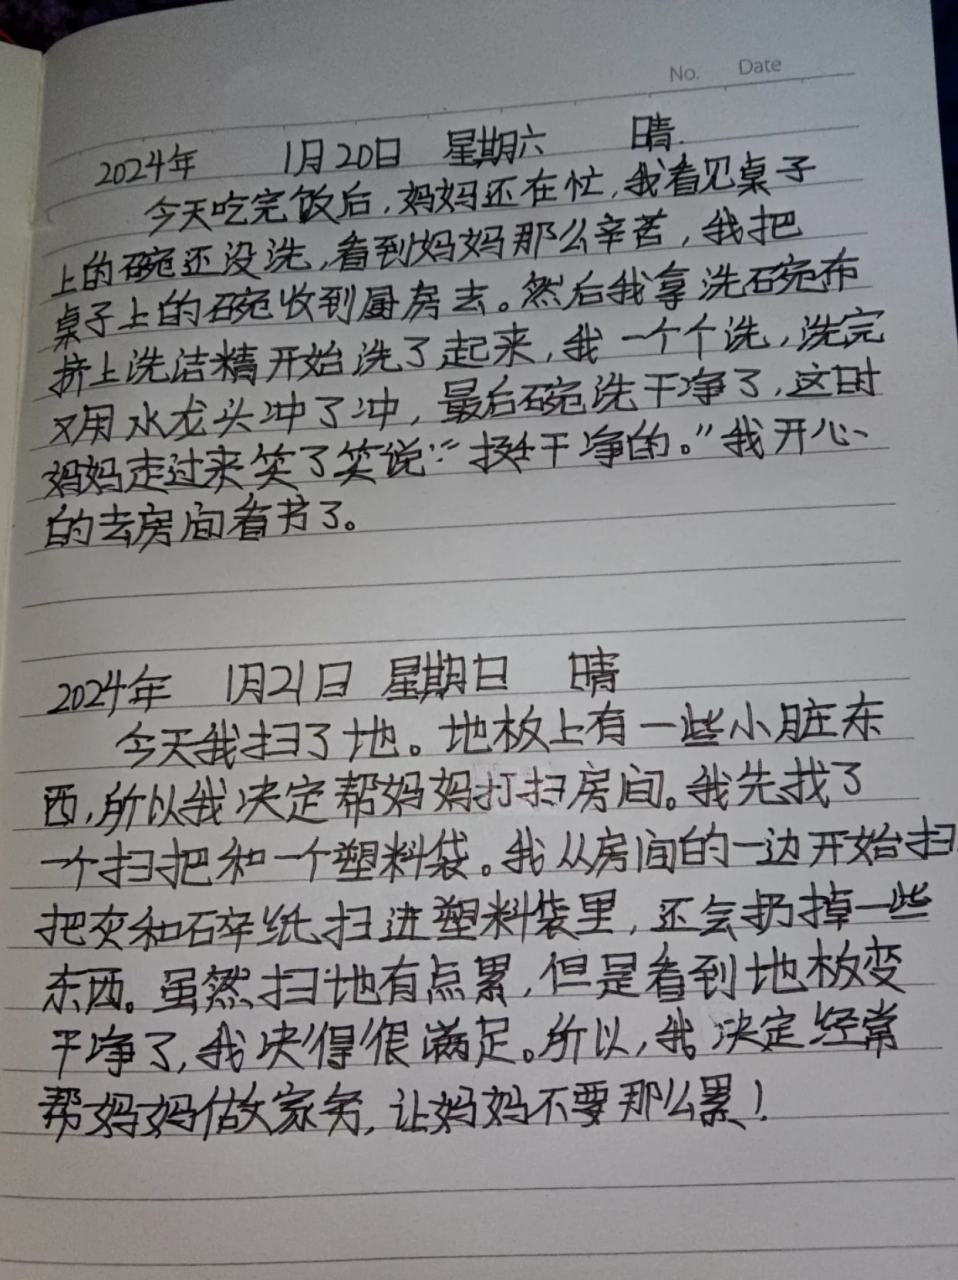 No. Date
2024年 1月20日 星期六 晴.
今天吃完饭后,妈妈还在忙,我看见桌子
上的碗还没洗,看到妈妈那么辛苦,我把
桌子上的碗收到厨房去。然后我拿洗碗布
挤上洗洁精开始洗了起来,我一个个洗,洗完
又用水龙头冲了冲,最后碗洗干净了,这时
妈妈走过来笑了笑说:“挺干净的。”我开心
的去房间看书了。
2024年 1月21日 星期日 晴
今天我扫了地。地板上有一些小脏东
西,所以我决定帮妈妈打扫房间。我先找了
一个扫把和一个塑料袋。我从房间的一边开始扫
把灰和碎纸扫进塑料袋里,还会扔掉一些
东西。虽然扫地有点累,但是看到地板变
干净了,我决得很满足。所以,我决定经常
帮妈妈做家务,让妈妈不要那么累!